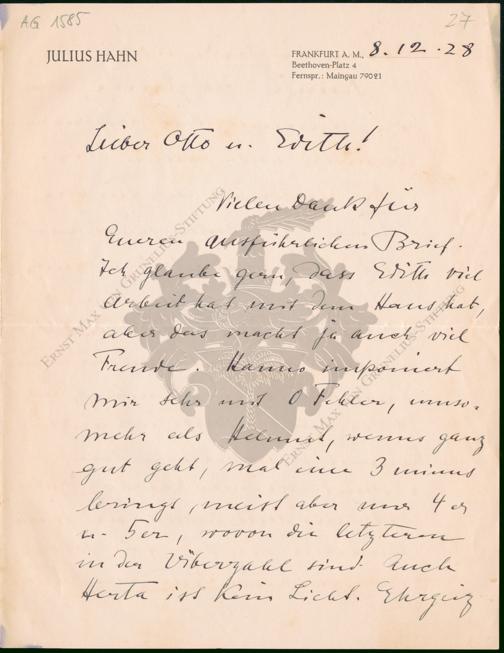 AG 1585
27
JULIUS HAHN
FRANKFURT A. M., 8.12.28
Beethoven-Platz 4
Fernspr.: Maingau 79021
Lieber Otto u. Edith!
Vielen Dank für
Eueren ausführlichen Brief.
Ich glaube gern, dass Edith viel
Arbeit hat mit dem Haus hat,
aber das macht ja auch viel
Freude. Hanno imponiert
mir sehr mit 0 Fehler, umso-
mehr als Helmut, wenns ganz
gut geht, mal eine 3 minus
bringt, meist aber nur 4 er
u. 5er, wovon die letzteren
in der Überzahl sind. Auch
Herta ist kein Licht. Ehrgeiz
ERNST MAX VON GRUNELIUS-STIFTUNG
ERNST MAX VON GRUNELIUS-STIFTUNG